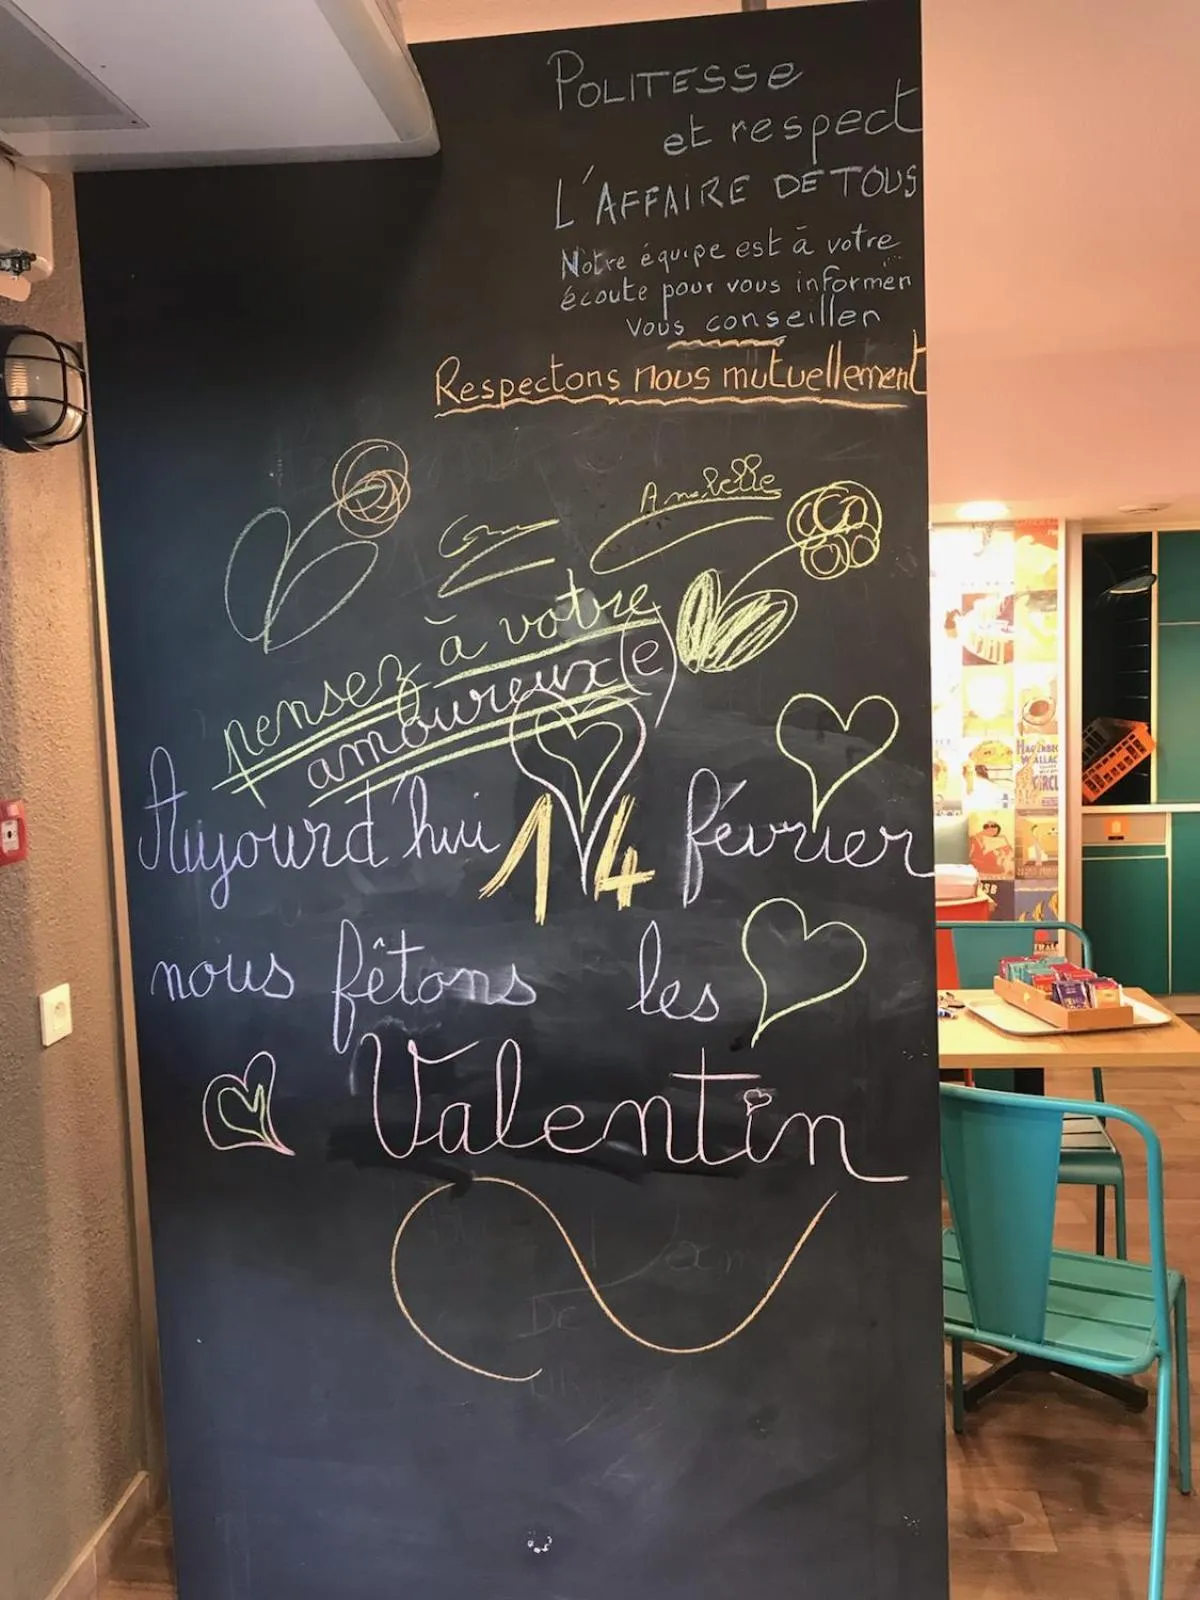 POLITESSE
et respect
L'AFFAIRE DE TOUS
Notre équipe est à votre
écoute pour vous informer
vous conseiller
Respectons nous mutuellement
pensez à votre
amoureux(e)
Aujourd'hui 14 février
nous fêtons les
Valentin
DE
HAGENBECK
WALLACE
CIRCUS